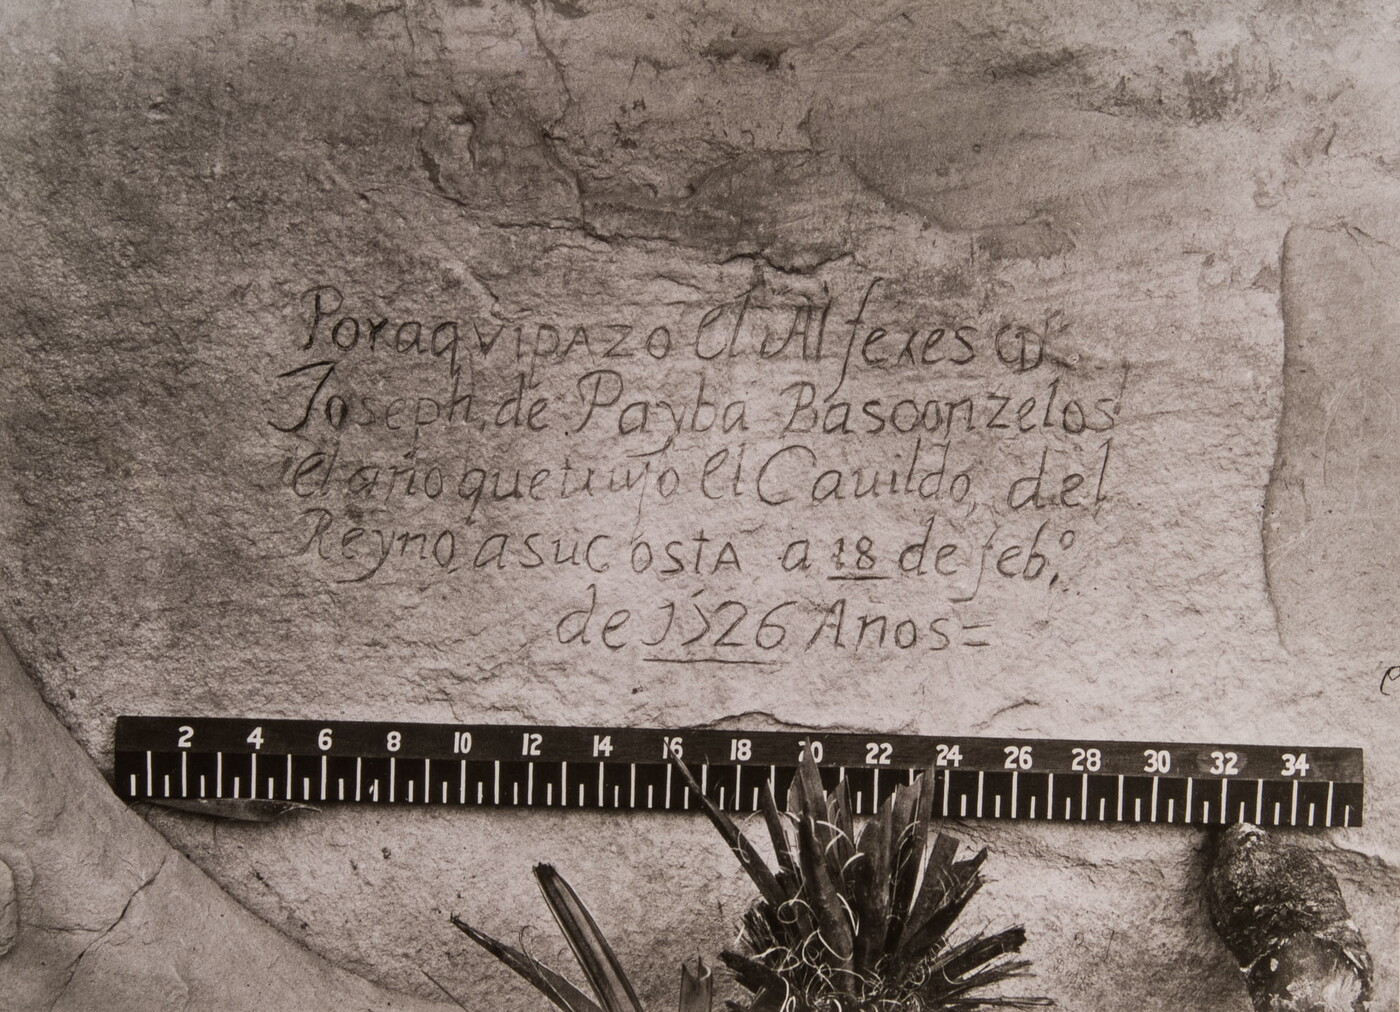 Por aqvi pazo el Alferes Dn
Joseph de Payba Basconzelos
el año que trujo el Cauildo del
Reyno a su costa a 18 de febo
de 1726 Años=
2 4 6 8 10 12 14 16 18 20 22 24 26 28 30 32 34